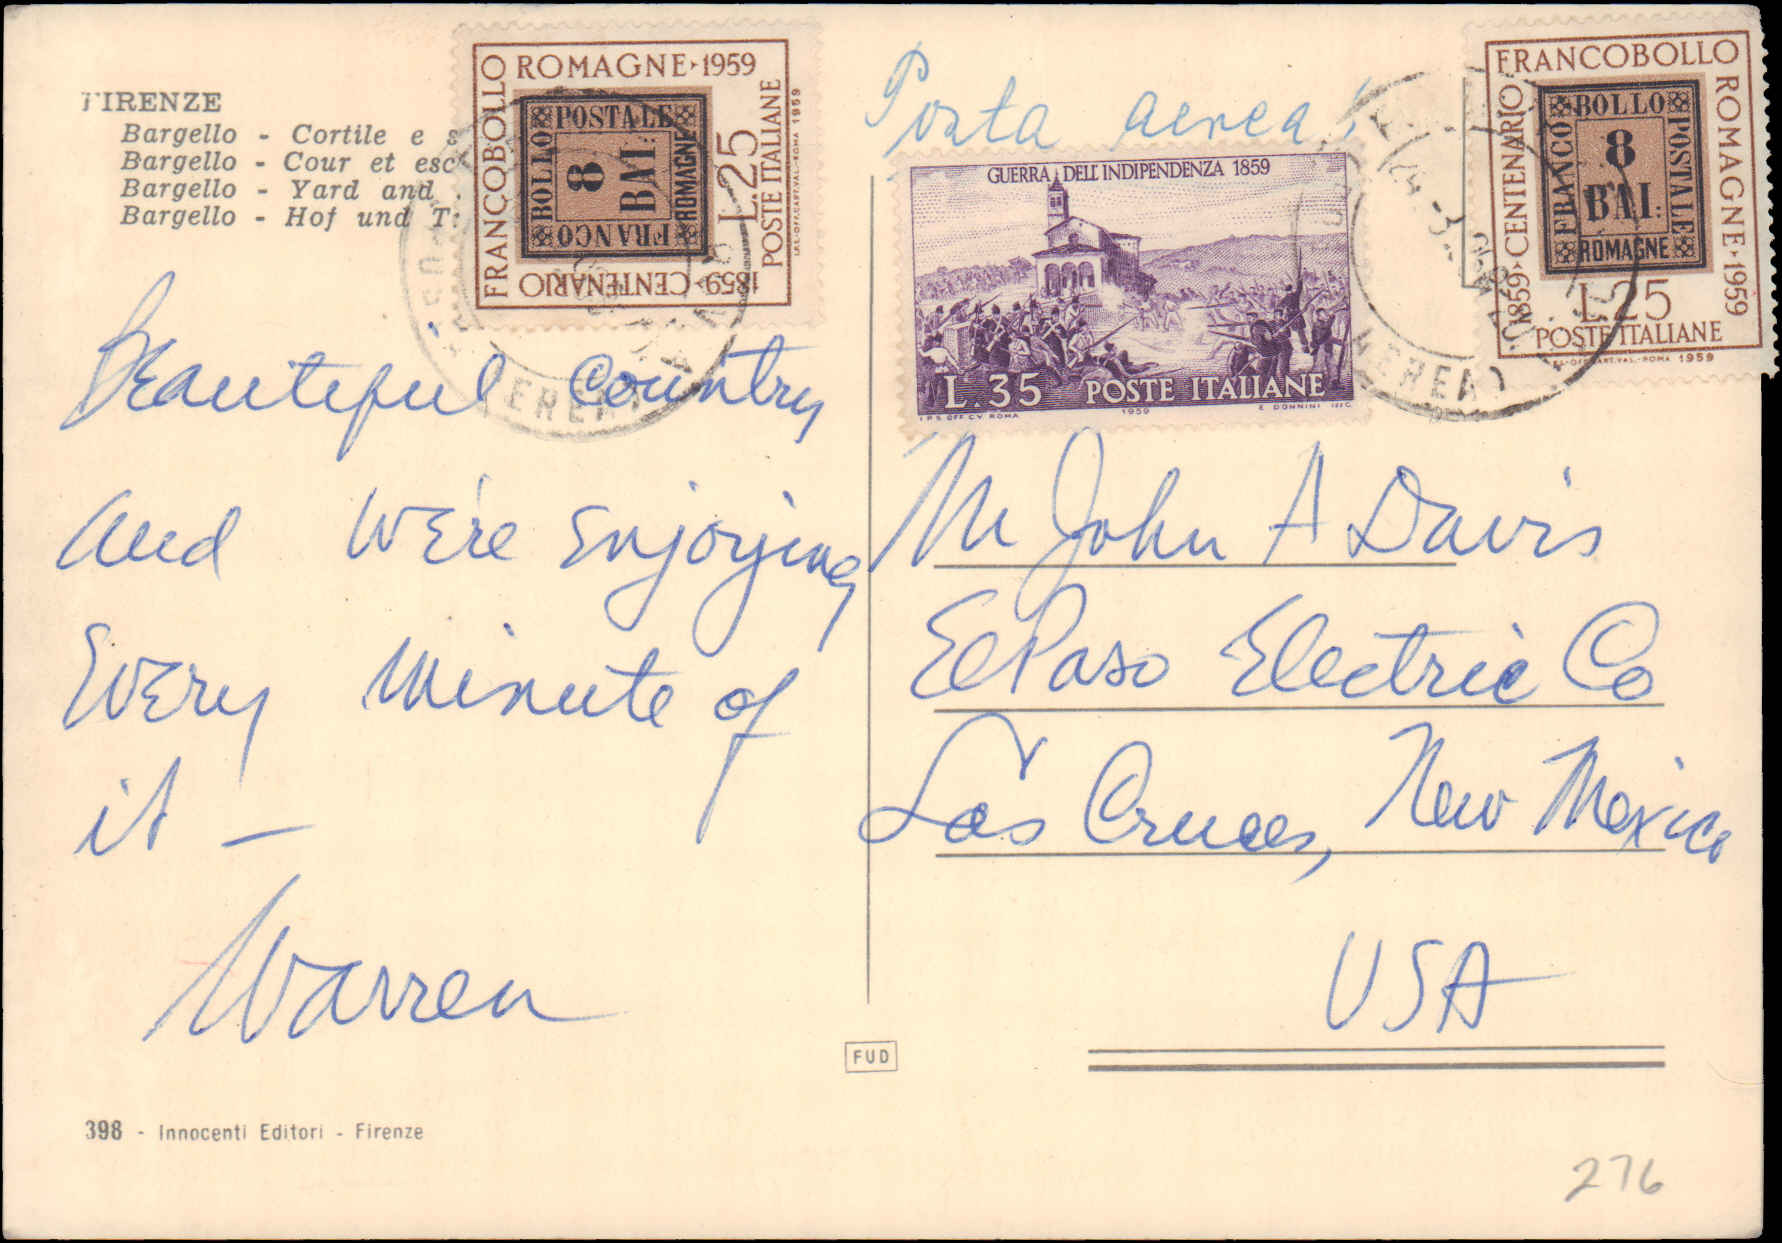 FIRENZE
Bargello - Cortile e
Bargello - Cour et
Bargello - Yard and
Bargello - Hof und
FRANCOBOLLO ROMAGNE · 1959
1859 · CENTENARIO
FRANCO BOLLO POSTALE ROMAGNE
8
BAI:
L.25
POSTE ITALIANE
I.P.S.-OFF.CART.VAL.-ROMA 1959
Posta aerea
GUERRA DELL'INDIPENDENZA 1859
L.35 POSTE ITALIANE
I.P.S. OFF. C.V. ROMA 1959 E. DONNINI INC.
1859 · CENTENARIO FRANCOBOLLO ROMAGNE · 1959
FRANCO BOLLO POSTALE ROMAGNE
8
BAI:
L.25
POSTE ITALIANE
I.P.S.-OFF.CART.VAL.-ROMA 1959
Beautiful Country
and we're enjoying
Every minute of
it –
Warren
Mr John A Davis
El Paso Electric Co
Las Cruces, New Mexico
USA
FUD
398 - Innocenti Editori - Firenze
276